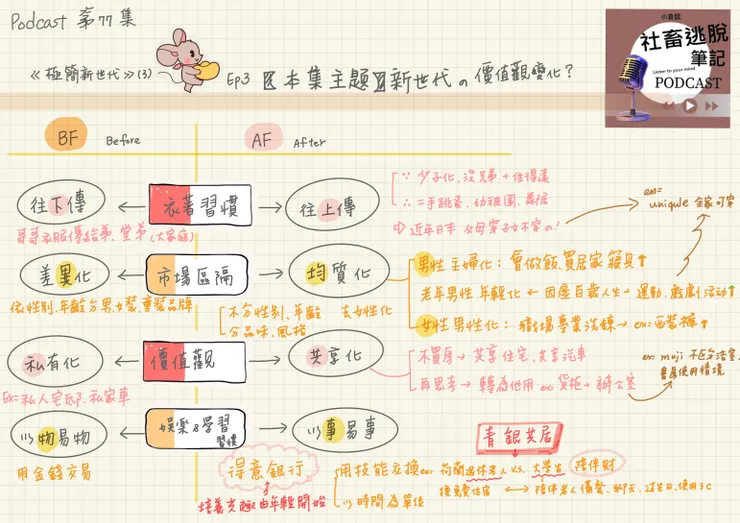 Podcast 第77集
《極簡新世代》(3)
Ep3 【本集主題】新世代の價值觀變化?
小倉鼠
社畜逃脫
筆記
Listen to your mind
PODCAST
BF Before
AF After
往下傳
衣著習慣
往上傳
哥哥衣服傳給弟、堂弟 (大家庭)
∵ 少子化、沒兄弟 + 住得遠
∴ 二手跳蚤、幼稚園、鄰居
近年日本 父母穿子女不穿の!
ex=
unique 錄可穿
差異化
市場區隔
均質化
依性別、年齡分男、女裝、童裝品牌
不分性別、年齡
去女性化
分品味、風格
男性主婦化: 會做飯、買居家寢具↑
老年男性年輕化 ← 因應百歲人生→ 運動、戲劇活動↑
女性男性化: 職場專業洗鍊→ ex=西裝褲↑
私有化
價值觀
共享化
Ex=私人宅邸、私家車
不買房→ 共享住宅、共享汽車
再思考→ 轉為他用 ex: 貨柜→辦公室
ex: muji 不區分浴室、
書房使用情境
以物易物
娛樂&學習
習慣
以事易事
用金錢交易
得意銀行
培養志趣由年輕開始
用技能交換 ex: 荷蘭退休老人 V.S. 大學生
以時間為單位
青銀共居
陪伴財
換免費住宿 ↔ 陪伴老人備餐、聊天、過生日、使用3C